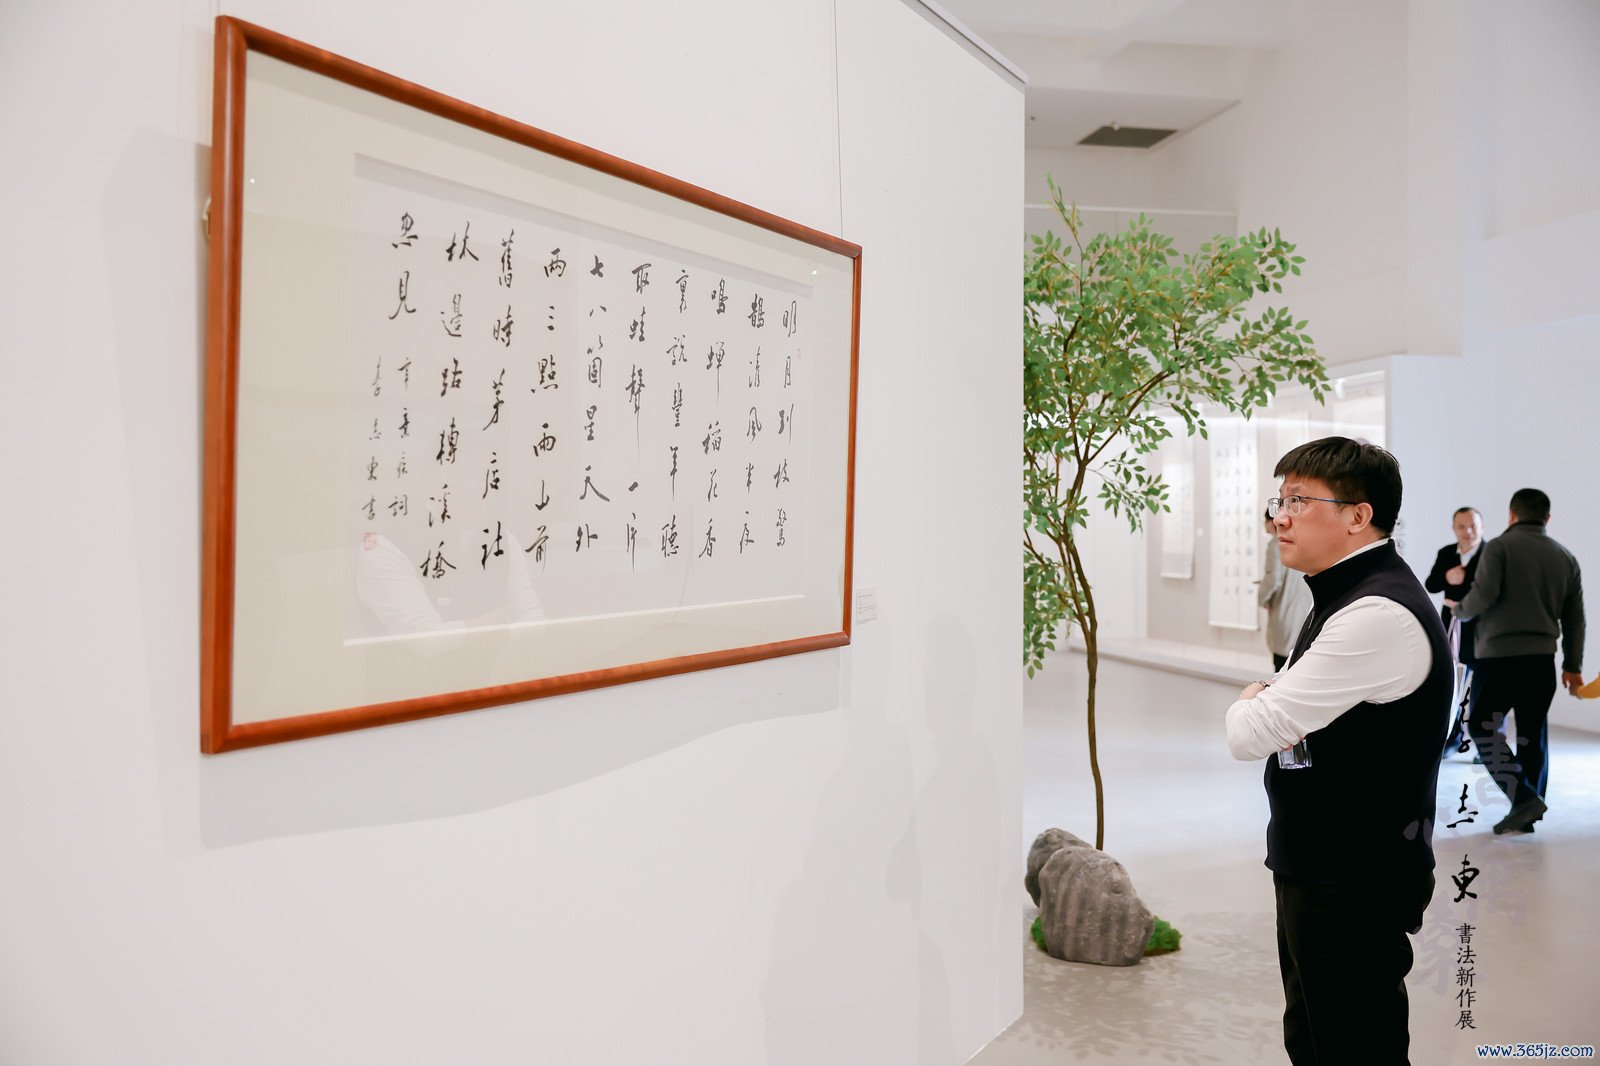 明月别枝驚
鵲清風半夜
鳴蝉稻花香
裏說豐年聽
取蛙聲一片
七八箇星天外
兩三點雨山前
舊時茅店社
林邊路轉溪橋
忽見
辛棄疾詞
李志東書
李志東
書法新作展
www.365jz.com